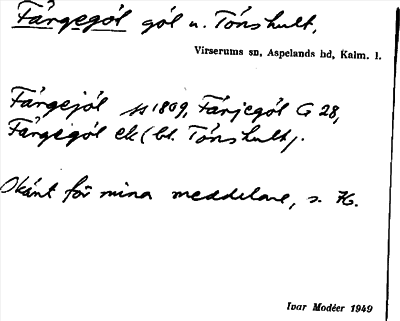 Färgegöl göl n. Tönshult.
Virserums sn, Aspelands hd, Kalm. l.
Färgejöl 1809, Färjegöl G 28,
Färgegöl ek (bl. Tönshult).
Okänt för mina meddelare, s. K.
Ivar Modéer 1949